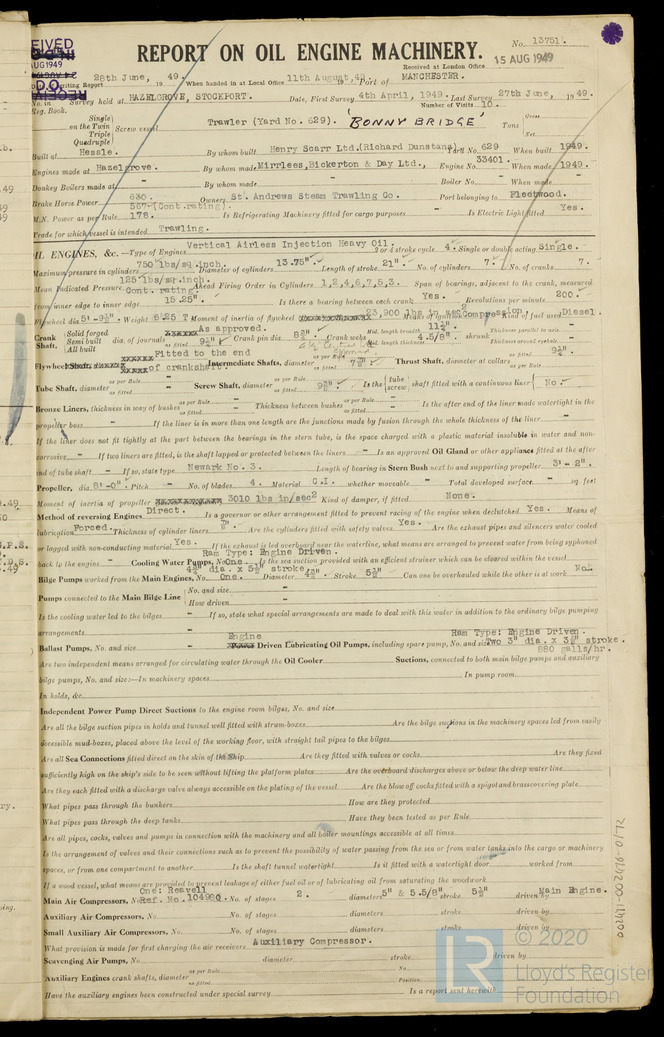 REPORT ON OIL ENGINE MACHINERY.
No. 13751.
15 AUG 1949
Received at London Office
28th June, 19 49. When handed in at Local Office 11th August, 49. Port of MANCHESTER.
No. in Survey held at HAZELGROVE, STOCKPORT. Date, First Survey 4th April, 1949. Last Survey 27th June, 19 49.
Reg. Book. Number of Visits 10.
Single
on the Twin
Triple
Quadruple
Screw vessel Trawler (Yard No. 629). 'BONNY BRIDGE' Tons Gross Net
Built at Hessle. By whom built Henry Scarr Ltd. (Richard Dunstans) Yard No. 629 When built 1949.
Engines made at Hazelgrove. By whom made Mirrlees, Bickerton & Day Ltd., Engine No. 33401. When made 1949.
Donkey Boilers made at - By whom made - Boiler No. - When made -
Brake Horse Power 630. 567 (Cont. rating). Owners St. Andrews Steam Trawling Co. Port belonging to Fleetwood.
M.N. Power as per Rule 178. Is Refrigerating Machinery fitted for cargo purposes - Is Electric Light fitted Yes.
Trade for which vessel is intended Trawling.
OIL ENGINES, &c.—Type of Engines Vertical Airless Injection Heavy Oil. 2 or 4 stroke cycle 4. Single or double acting Single.
Maximum pressure in cylinders 750 lbs/sq.inch. Diameter of cylinders 13.75". Length of stroke 21". No. of cylinders 7. No. of cranks 7.
Mean Indicated Pressure 125 lbs/sq.inch. Cont. rating. Ahead Firing Order in Cylinders 1,2,4,6,7,5,3. Span of bearings, adjacent to the crank, measured
from inner edge to inner edge 15.25". Is there a bearing between each crank Yes. Revolutions per minute 200.
Flywheel dia. 5'-9¼". Weight Moment of inertia of flywheel 23,900 lbs in sec Means of ignition Compression Kind of fuel used Diesel.
Crank Shaft, Solid forged Semi built All built dia. of journals as per Rule As approved. as fitted 9¼" Crank pin dia. 8¾" Crank webs Mid. length breadth 11¼" Mid. length thickness 4.5/8" shrunk Thickness parallel to axis - Thickness around eyehole -
Flywheel Shaft, diameter Fitted to the end of crankshaft. Intermediate Shafts, diameter as per Rule as fitted Thrust Shaft, diameter at collars as per Rule as fitted 9¼".
Tube Shaft, diameter as per Rule - as fitted - Screw Shaft, diameter as per Rule as fitted Is the tube screw shaft fitted with a continuous liner No.
Bronze Liners, thickness in way of bushes as per Rule - as fitted - Thickness between bushes as per Rule - as fitted - Is the after end of the liner made watertight in the
propeller boss - If the liner is in more than one length are the junctions made by fusion through the whole thickness of the liner -
If the liner does not fit tightly at the part between the bearings in the stern tube, is the space charged with a plastic material insoluble in water and non-
corrosive - If two liners are fitted, is the shaft lapped or protected between the liners - Is an approved Oil Gland or other appliance fitted at the after
end of tube shaft - If so, state type Newark No. 3. Length of bearing in Stern Bush next to and supporting propeller 3'-2".
Propeller, dia. 8'-0". Pitch - No. of blades 4. Material C.I. whether moveable - Total developed surface - sq. feet
Moment of inertia of propeller 3010 lbs in/sec² Kind of damper, if fitted None.
Method of reversing Engines Direct. Is a governor or other arrangement fitted to prevent racing of the engine when declutched Yes. Means of
lubrication Forced. Thickness of cylinder liners Are the cylinders fitted with safety valves Yes. Are the exhaust pipes and silencers water cooled
or lagged with non-conducting material Yes. If the exhaust is led overboard near the waterline, what means are arranged to prevent water from being syphoned
back to the engine - Ram Type: Engine Driven. Cooling Water Pumps, No. One. Is the sea suction provided with an efficient strainer which can be cleared within the vessel
4¾" dia. x 5½" stroke.
Bilge Pumps worked from the Main Engines, No. One. Diameter 4¾". Stroke 5½" Can one be overhauled while the other is at work No.
Pumps connected to the Main Bilge Line No. and size - How driven -
Is the cooling water led to the bilges - If so, state what special arrangements are made to deal with this water in addition to the ordinary bilge pumping
arrangements -
Ballast Pumps, No. and size - Engine Driven Lubricating Oil Pumps, including spare pump, No. and size Ram Type: Engine Driven. Two 3" dia. x 3½" stroke. 880 galls/hr.
Are two independent means arranged for circulating water through the Oil Cooler Suctions, connected to both main bilge pumps and auxiliary
bilge pumps, No. and size:—In machinery spaces In pump room
In holds, &c.
Independent Power Pump Direct Suctions to the engine room bilges, No. and size
Are all the bilge suction pipes in holds and tunnel well fitted with strum-boxes Are the bilge suctions in the machinery spaces led from easily
accessible mud-boxes, placed above the level of the working floor, with straight tail pipes to the bilges
Are all Sea Connections fitted direct on the skin of the ship Are they fitted with valves or cocks Are they fixed
sufficiently high on the ship's side to be seen without lifting the platform plates Are the overboard discharges above or below the deep water line
Are they each fitted with a discharge valve always accessible on the plating of the vessel Are the blow off cocks fitted with a spigot and brass covering plate
What pipes pass through the bunkers How are they protected
What pipes pass through the deep tanks Have they been tested as per Rule
Are all pipes, cocks, valves and pumps in connection with the machinery and all boiler mountings accessible at all times
Is the arrangement of valves and their connections such as to prevent the possibility of water passing from the sea or from water tanks into the cargo or machinery
spaces, or from one compartment to another Is the shaft tunnel watertight Is it fitted with a watertight door worked from
If a wood vessel, what means are provided to prevent leakage of either fuel oil or of lubricating oil from saturating the woodwork
Main Air Compressors, No. One: Reavell Ref. No. 104990. No. of stages 2. diameters 5" & 5.5/8" stroke 5½" driven by Main Engine.
Auxiliary Air Compressors, No. No. of stages diameters stroke driven by
Small Auxiliary Air Compressors, No. No. of stages diameters stroke driven by
What provision is made for first charging the air receivers Auxiliary Compressor.
Scavenging Air Pumps, No. diameter stroke driven by
Auxiliary Engines crank shafts, diameter as per Rule as fitted No. Position
Have the auxiliary engines been constructed under special survey Is a report sent herewith
002471-002476-0172
© 2020
LR
Lloyd's Register
Foundation